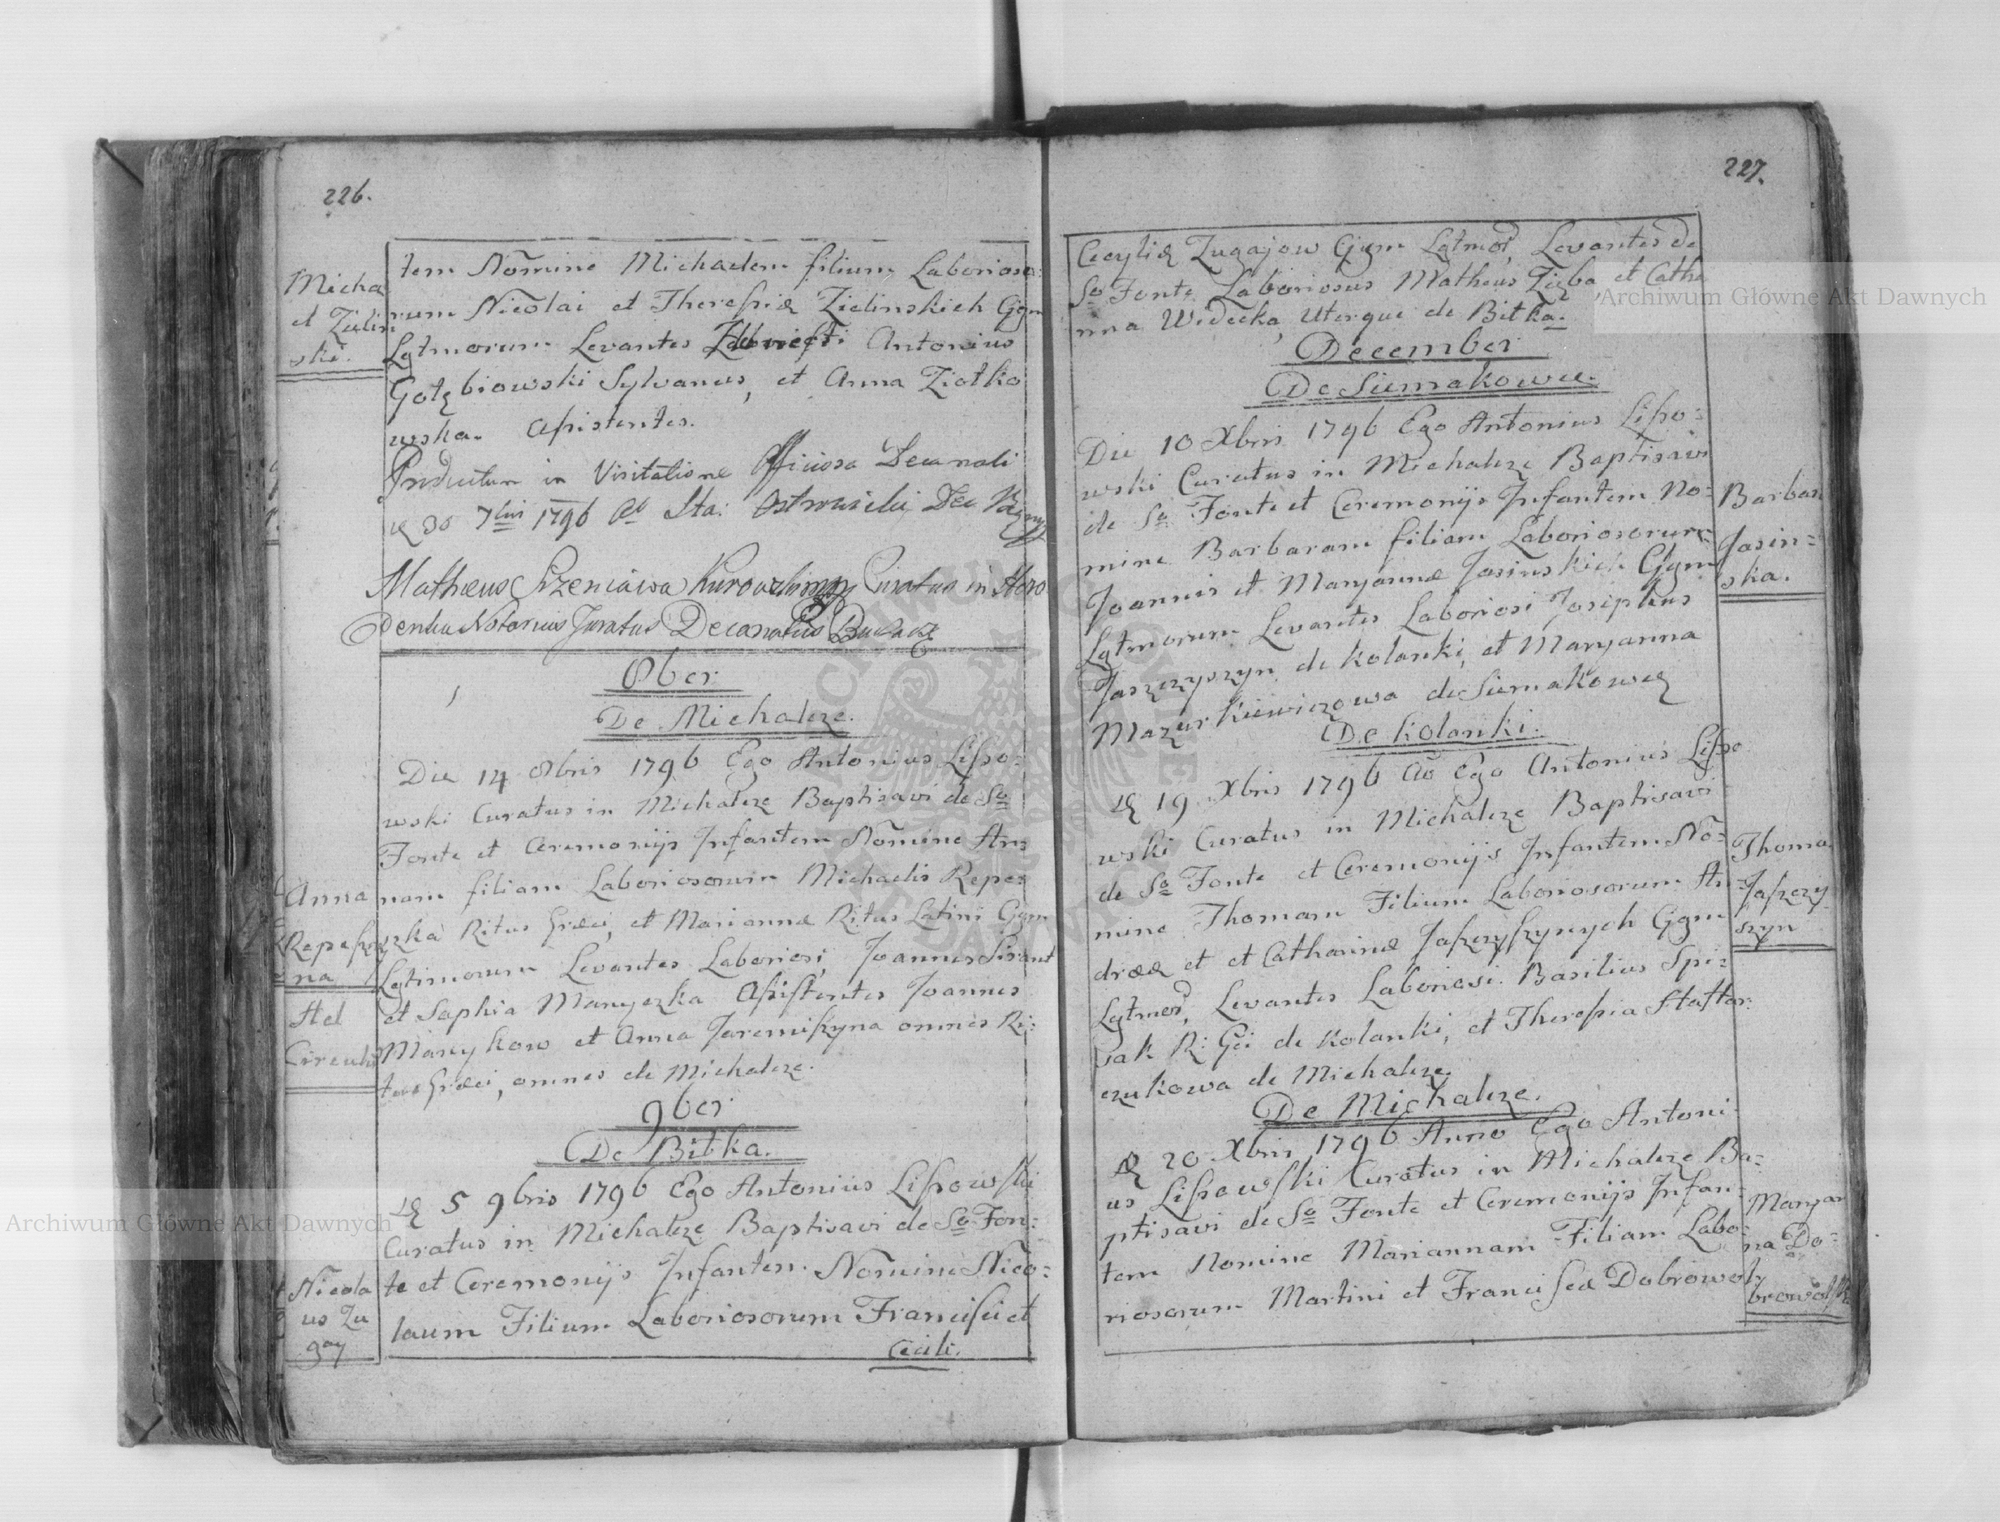 226.
Micha
el Zielin
ski.
tem Nomine Michaelem filium Laborioso-
rum Nicolai et Theresiæ Zielinskich Cjgm
Lgtmorum Levantes Antonius
Gołębiowski Sylvanus, et Anna Ziołko
wska. Assistentes.
Productum in Visitatione Officiosa Decanali
30 7bris 1796
Mathæus Szeniawa Kurowski Curatus in Horo
denka Notarius Juratus Decanatus
8ber
De Michalcze.
Die 14 8bris 1796 Ego Antonius Lisso-
wski Curatus in Michalcze Baptisavi de So
Fonte et Ceremonijs Infantem Nomine An
Anna
nam filiam Laboriosorum Michaelis Repes
Repeszy
na
szka Ritus Græci, et Mariannæ Ritus Latini Cjgm
Lgtimorum Levantes Laboriosi, Joannes Sirant
Ad
et Sophia Manyczka Assistentes Joannes
Circulu
Manykow et Anna Jaremiszyna omnes Ri-
tus Græci, omnes de Michalcze.
9ber
De Bitka.
5 9bris 1796 Ego Antonius Lissowski
Curatus in Michalcze Baptisavi de So Fon-
te et Ceremonijs Infantem Nomine Nico-
Nicola
us Zu
gaj
laum Filium Laboriosorum Francisci et
Cecili.
227.
Cecyliæ Zugajow Cjgm Lgtmor, Levantes de
So Fonte Laboriosus Matheus Zięba et Catha
rinna Widecka, Uterque de Bitka.
December
De Siemakowce.
Die 10 Xbris 1796 Ego Antonius Lisso-
wski Curatus in Michalcze Baptisavi
de So Fonte et Ceremonijs Infantem No-
Barbar
mine Barbaram filiam Laboriosorum
Jasin-
ska.
Joannis et Maryannæ Jasinskich Cjgm
Lgtmorum Levantes Laboriosi Josephus
Jaszczyszyn de Kolanki, et Maryanna
Mazurkiewiczowa de Siemakowce
De Kolanki.
19 Xbris 1796 Ao Ego Antonius Lisso
wski Curatus in Michalcze Baptisavi
de So Fonte et Ceremonijs Infantem No-
Thoma
mine Thomam Filium Laboriosorum An-
Jaszczy
szyn
dreæ et et Catharinæ Jaszczyszynych Cjgm
Lgtmor, Levantes Laboriosi Basilius Spi-
sak R: Gci de Kolanki, et Theresia Haftar-
czukowa de Michalcze.
De Michalcze.
20 Xbris 1796 Anno Ego Antoni-
us Lissowski Curatus in Michalcze Ba-
ptisavi de So Fonte et Ceremonijs Infan-
Maryan
na Do-
browolsk
tem Nomine Mariannam Filiam Labo-
riosorum Martini et Franciscæ Dobrowol
Archiwum Główne Akt Dawnych
Archiwum Główne Akt Dawnych